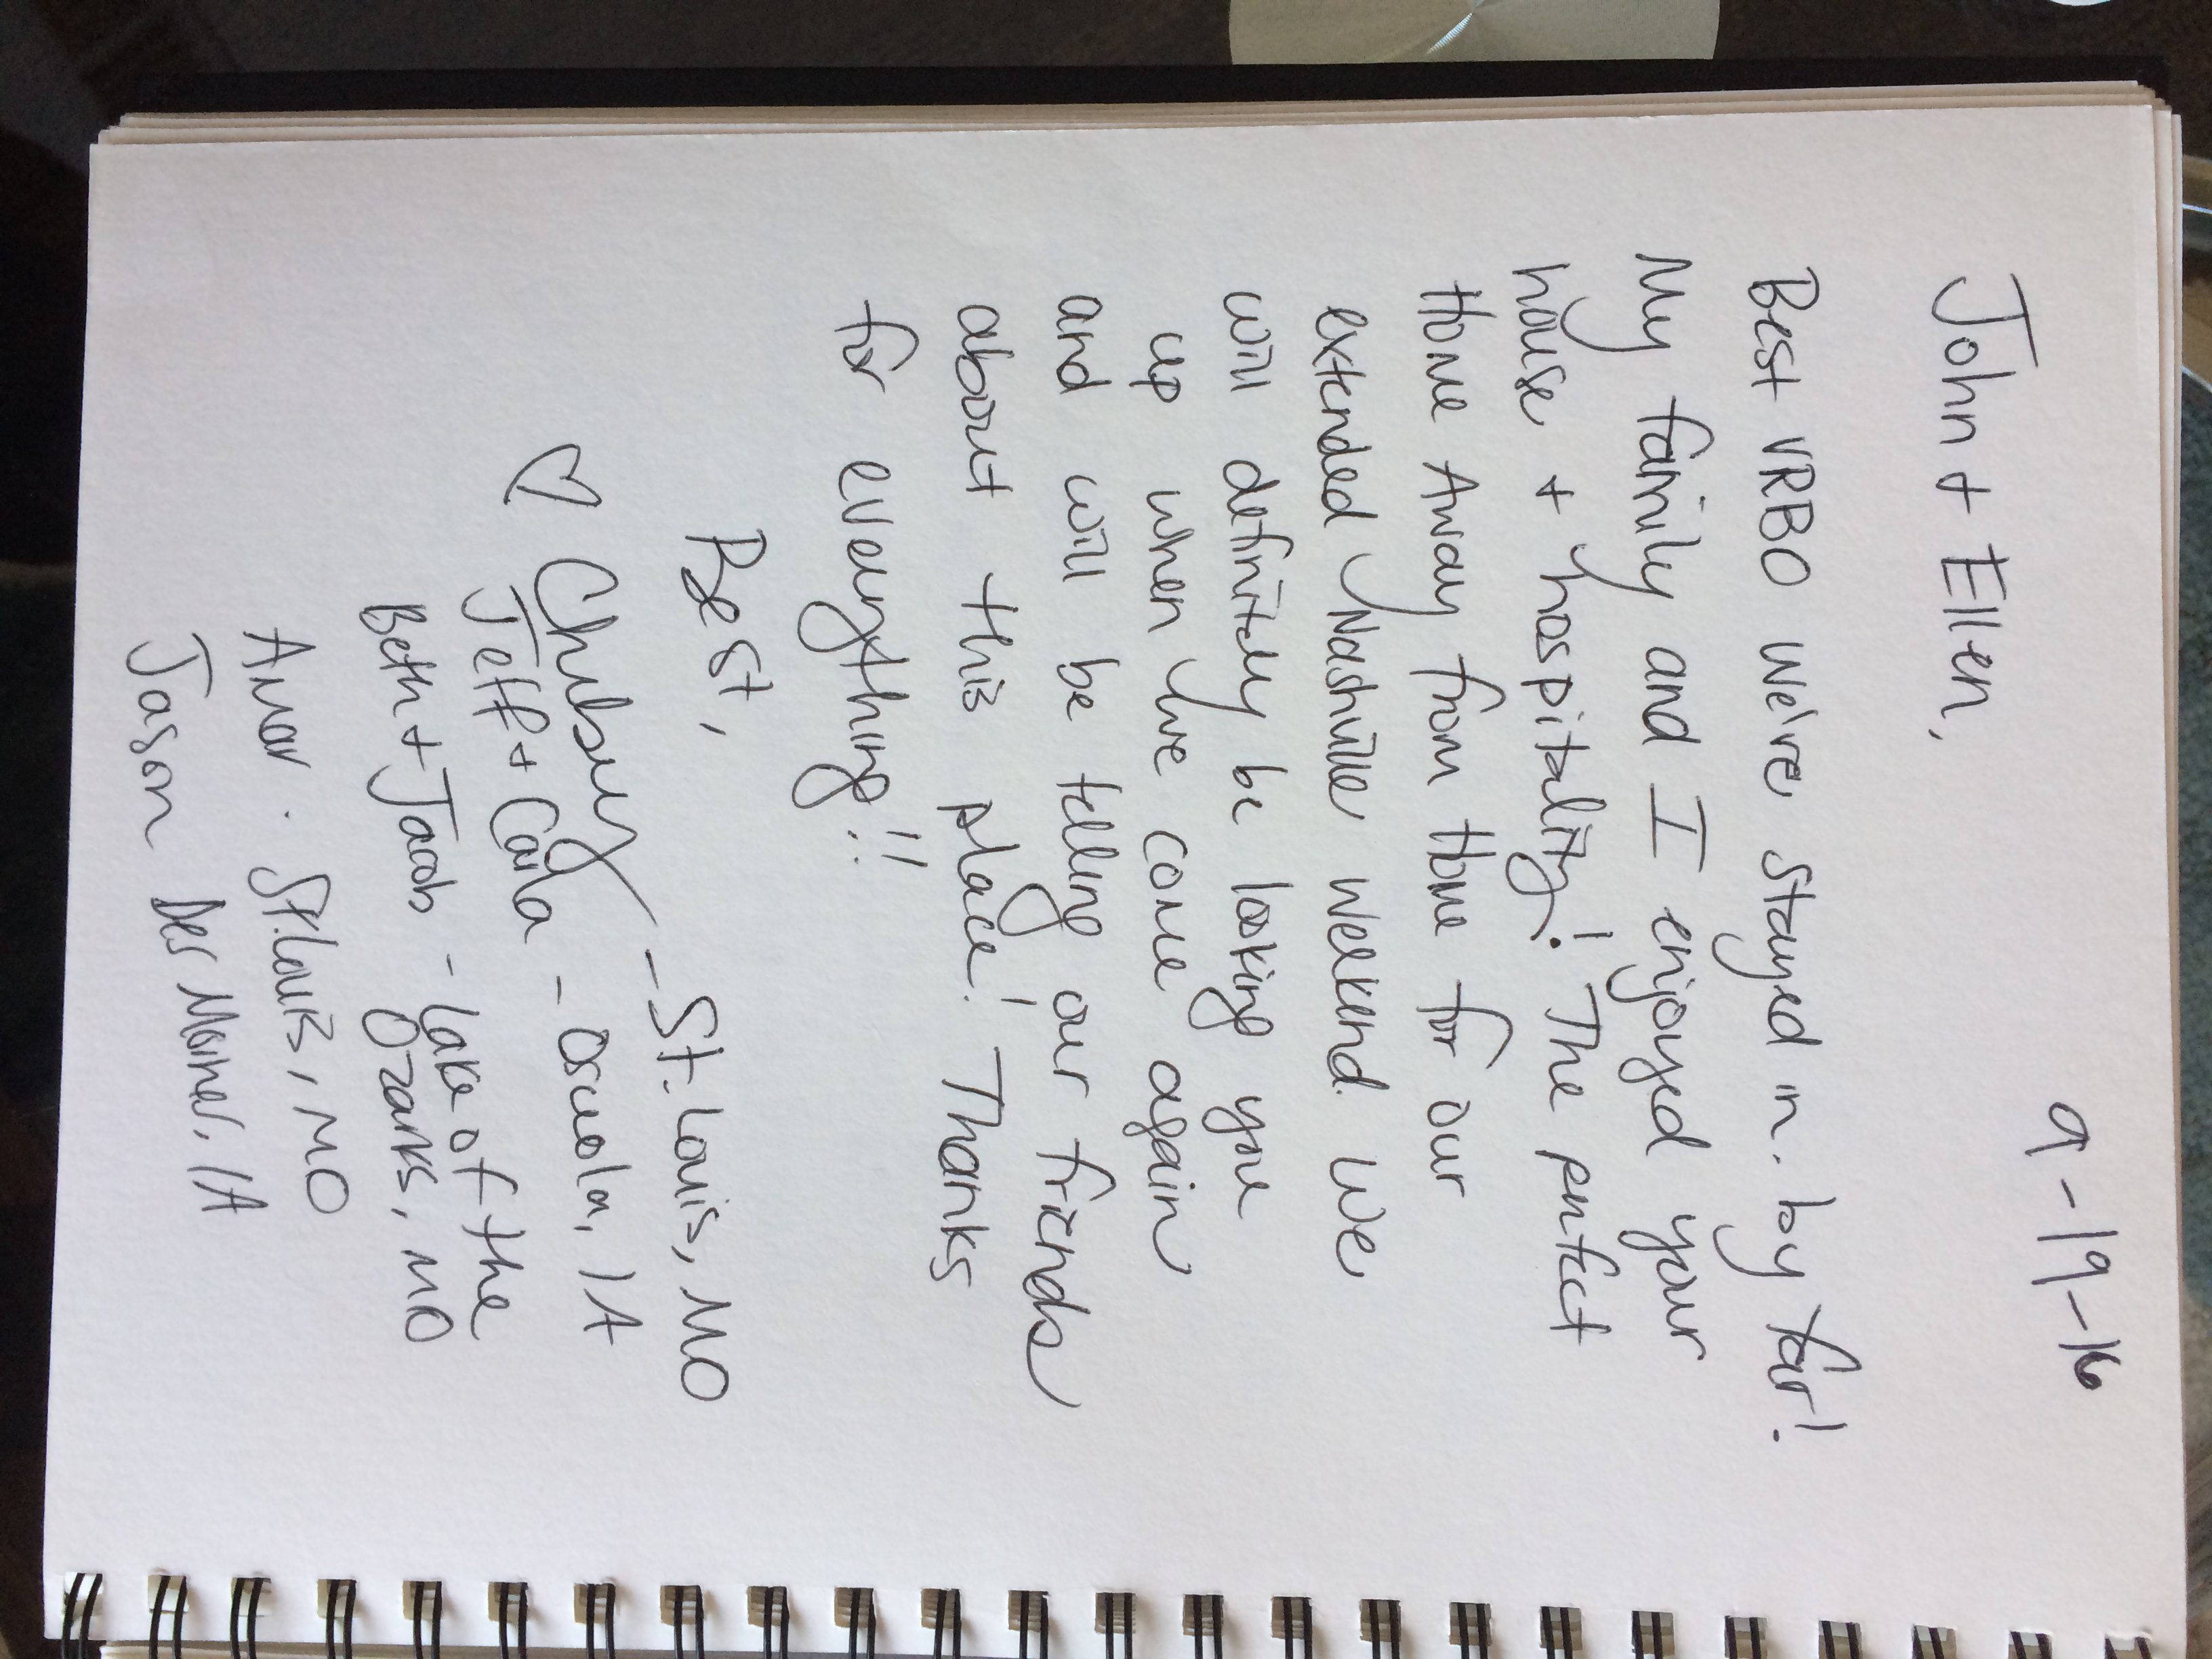 9-19-16
John + Ellen,
Best VRBO we've stayed in. by far!
My family and I enjoyed your
house + hospitality! The perfect
Home Away from Home for our
extended Nashville weekend. We
will definitely be looking you
up when we come again
and will be telling our friends
about this place! Thanks
for everything!!
Best,
♡ Chubsuy - St. Louis, MO
Jeff + Carla - Osceola, IA
Beth + Jacob - Lake of the
Ozarks, MO
Amar . St. Louis, MO
Jason Des Moines, IA